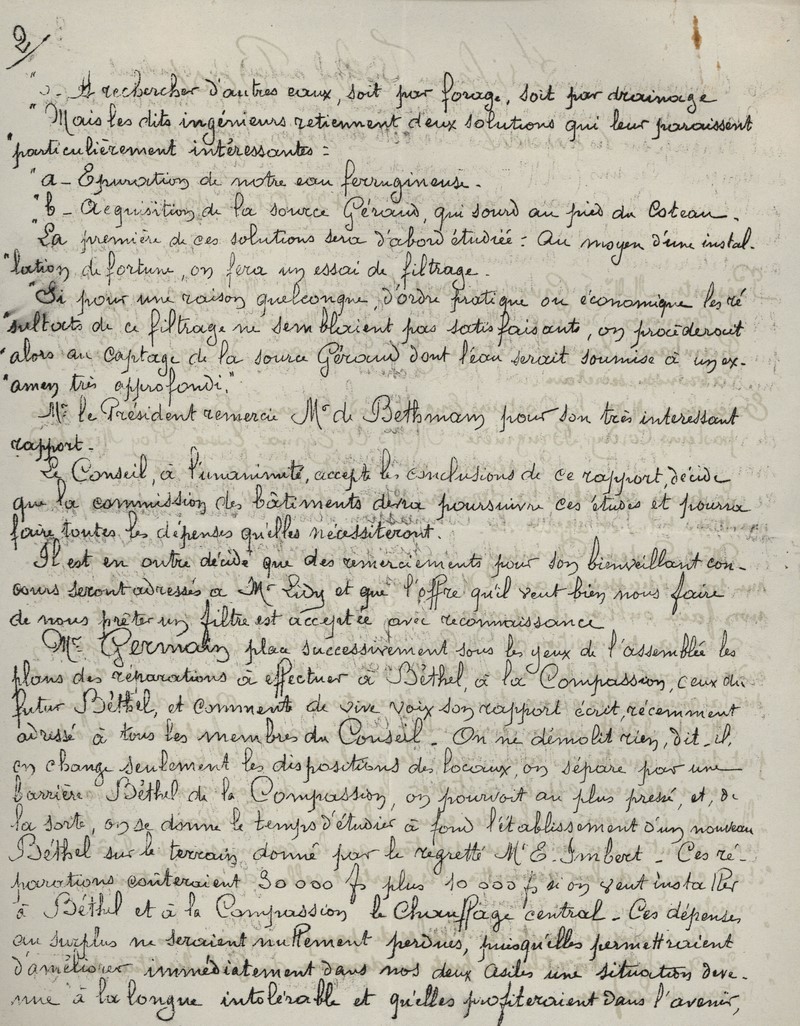 2/
"3 - A rechercher d'autres eaux, soit par forage, soit par drainage
"Mais les dits ingénieurs retiennent deux solutions qui leur paraissent
"particulièrement intéressantes :
"a - Epuration de notre eau ferrugineuse.
"b - Acquisition de la source Géraud, qui sourd au pied du Coteau.
"La première de ces solutions sera d'abord étudiée : Au moyen d'une instal-
"lation de fortune, on fera un essai de filtrage.
"Si pour une raison quelconque, d'ordre pratique ou économique les ré
"sultats de ce filtrage ne semblaient pas satisfaisants, on procèderait
"alors au captage de la source Géraud dont l'eau serait soumise à un ex-
"amen très approfondi."
Mr. le Président remercie Mr de Bethmann pour son très interessant
rapport.
Le Conseil, à l'unanimité, accepte les conclusions de ce rapport, décide
que la commission des bâtiments devra poursuivre ces études et pourra
faire toutes les dépenses qu'elles nécessiteront.
Il est en outre décidé que des remerciements pour son bienveillant con-
cours seront adressés à Mr Lidy et que l'offre qu'il veut bien nous faire
de nous prêter un filtre est acceptée avec reconnaissance
Mr. Germain place successivement sous les yeux de l'assemblée les
plans des réparations à effectuer à Béthel, à la Compassion, ceux du
futur Béthel, et commente de vive voix son rapport écrit, récemment
adressé à tous les membres du Conseil - On ne démolit rien, dit-il,
on change seulement les dispositions des locaux, on sépare par une
barrière Béthel de la Compassion, on pourvoit au plus pressé, et, de
la sorte, on se donne le temps d'étudier à fond l'établissement d'un nouveau
Béthel sur le terrain donné par le regretté Mr E. Imbert - Ces ré-
parations coûteraient 30 000 f plus 10 000 f si on veut installer
à Béthel et à la Compassion le Chauffage central - Ces dépenses
au surplus ne seraient nullement perdues, puisqu'elles permettraient
d'améliorer immédiatement dans nos deux Asiles une situation deve-
nue à la longue intolérable et qu'elles profiteraient dans l'avenir,